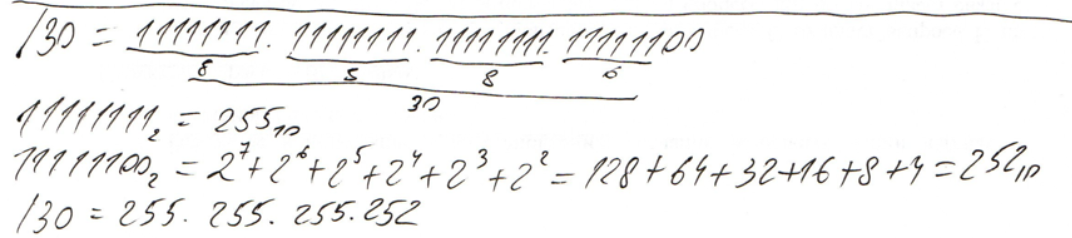 /30 = 11111111. 11111111. 11111111. 11111100
8 8 8 6
30
11111111₂ = 255₁₀
11111100₂ = 2⁷+2⁶+2⁵+2⁴+2³+2² = 128+64+32+16+8+4 = 252₁₀
/30 = 255. 255. 255. 252